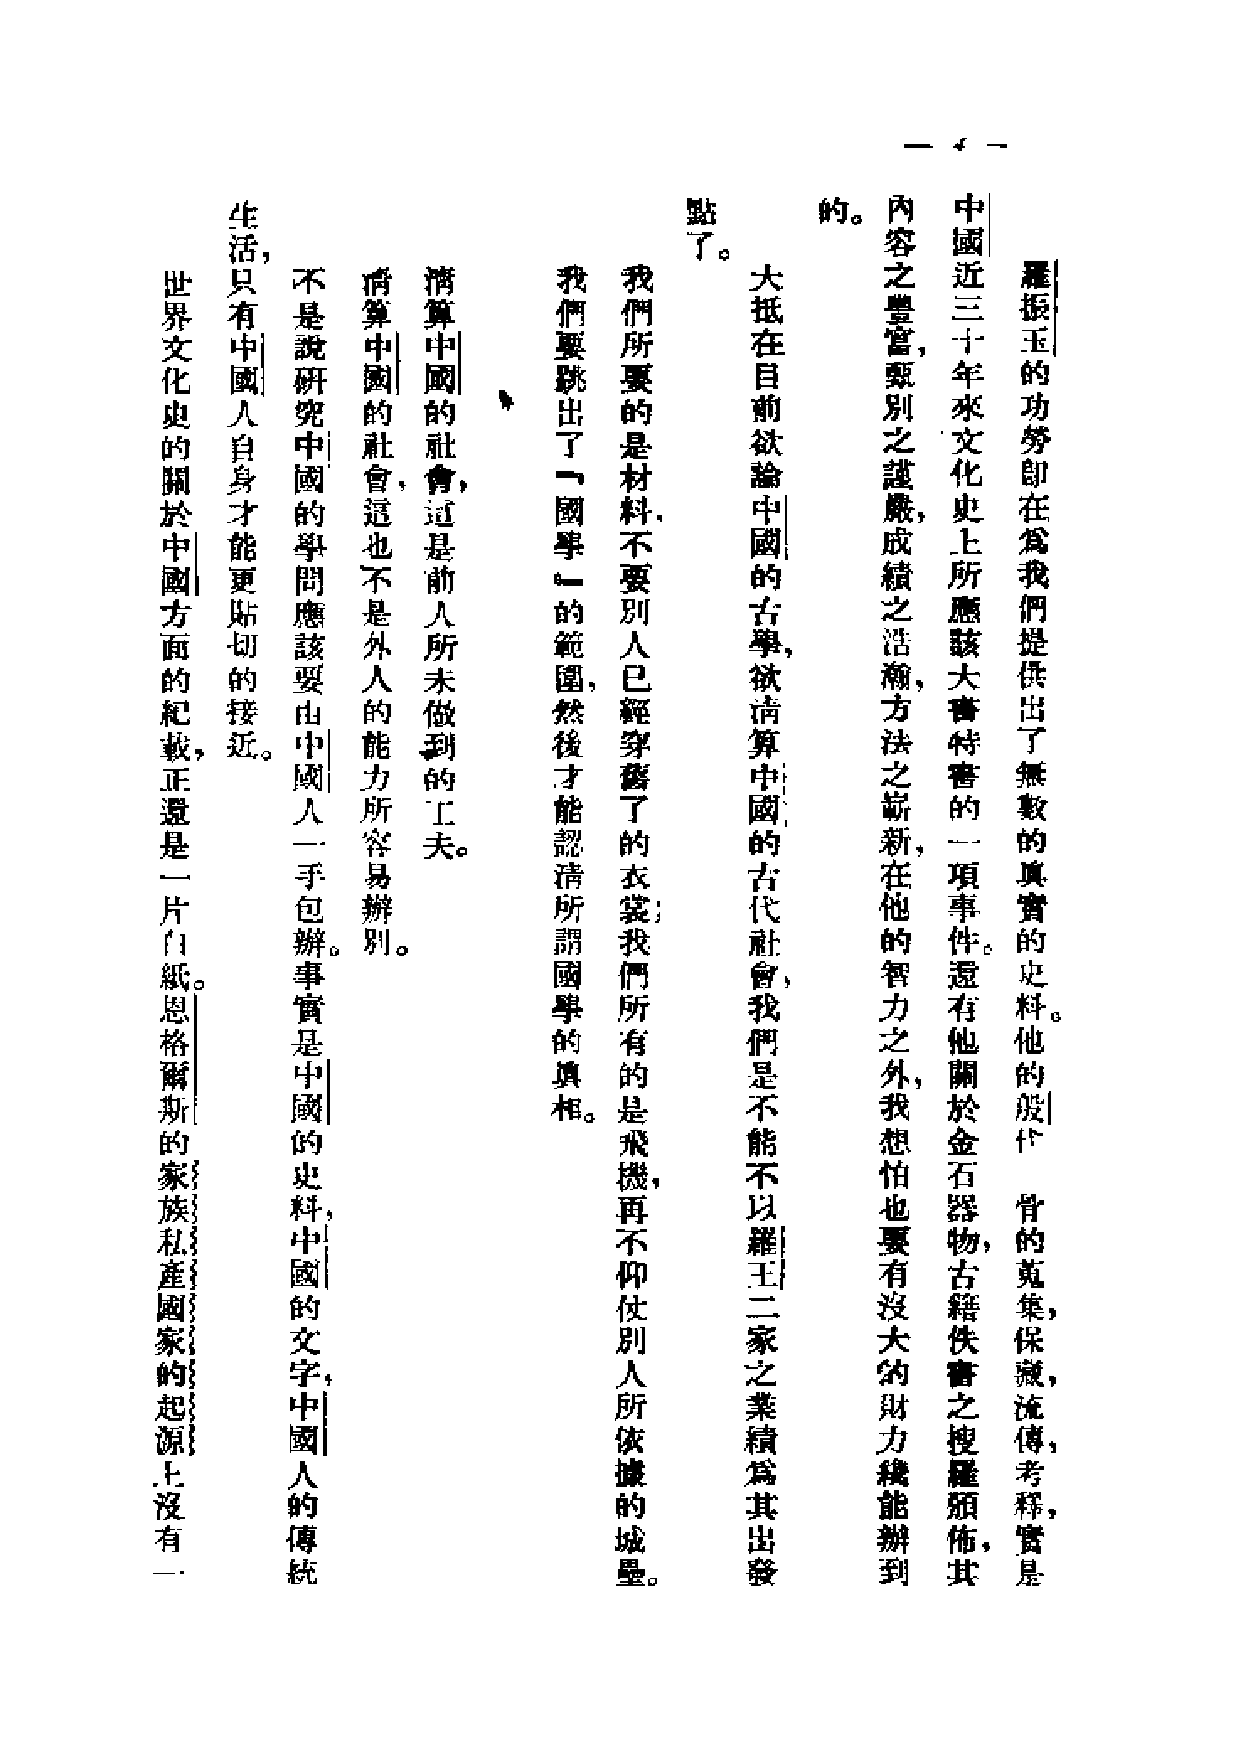 羅振玉的功勞卽在爲我們提供出了無數的眞實的史料。他的殷代 骨的蒐集,保藏,流傳,考釋,實是
中國近三十年來文化史上所應該大書特書的一項事件。還有他關於金石器物,古籍佚書之搜羅頒佈,其
內容之豐富,甄別之謹嚴,成績之浩瀚,方法之嶄新,在他的智力之外,我想怕也要有沒大的財力纔能辦到
的。
大抵在目前欲論中國的古學,欲淸算中國的古代社會,我們是不能不以羅王二家之業績爲其出發
點了。
我們所要的是材料,不要別人已經穿舊了的衣裳;我們所有的是飛機,再不仰仗別人所依據的城壘。
我們要跳出了『國學』的範圍,然後才能認淸所謂國學的眞相。
淸算中國的社會,這是前人所未做到的工夫。
淸算中國的社會,這也不是外人的能力所容易辦別。
不是說硏究中國的學問應該要由中國人一手包辦。事實是中國的史料,中國的文字,中國人的傳統
生活,只有中國人自身才能更貼切的接近。
世界文化史的關於中國方面的紀載,正還是一片白紙。恩格爾斯的家族私產國家的起源上沒有一